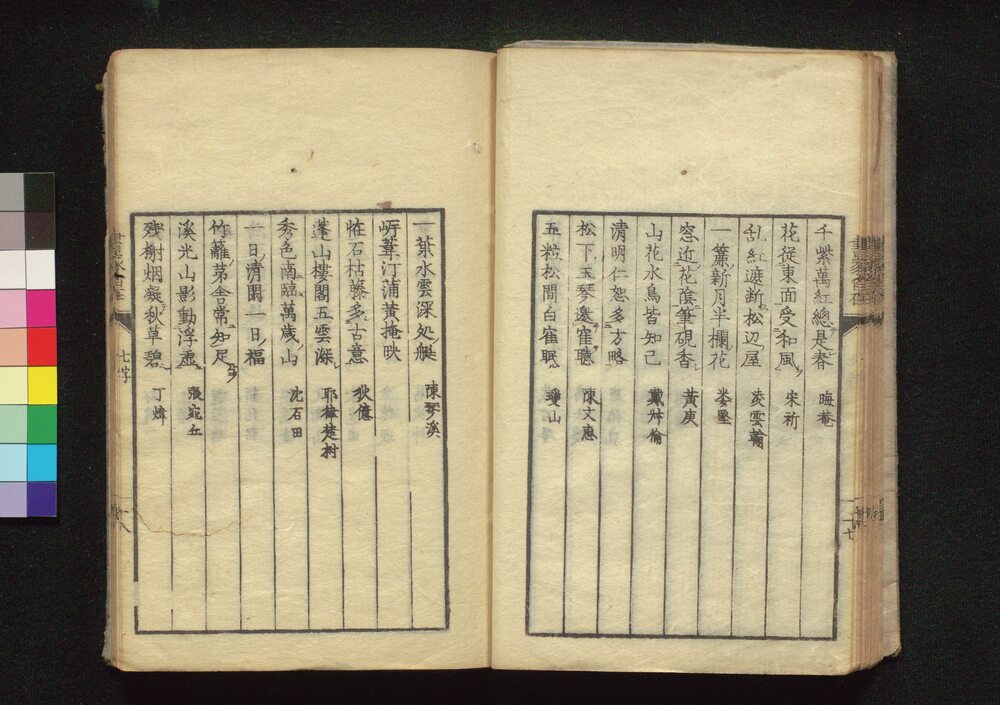 千紫萬紅總是春 晦菴
花從東面受和風 宋祈
乱紅遮断松辺屋 凌雲翰
一簾新月半欄花 娄堅
窓近花陰筆硯香 黃庚
山花水鳥皆知己 戴舛倫
清明仁恕多方略
松下玉琴邀寉聴 陳文惠
五粒松間白寉眠 雙山
十七
一葉水雲深処艇 陳琴溪
岍葦汀蒲黃掩映
恠石枯藤多古意 狄億
蓬山樓閣五雲深 耶律楚材
秀色南臨萬歲山 沈石田
一日清閑一日福
竹籬茅舍常知足
溪光山影動浮虛 張宛丘
残榭烟凝秋草碧 丁煒
七字
十八